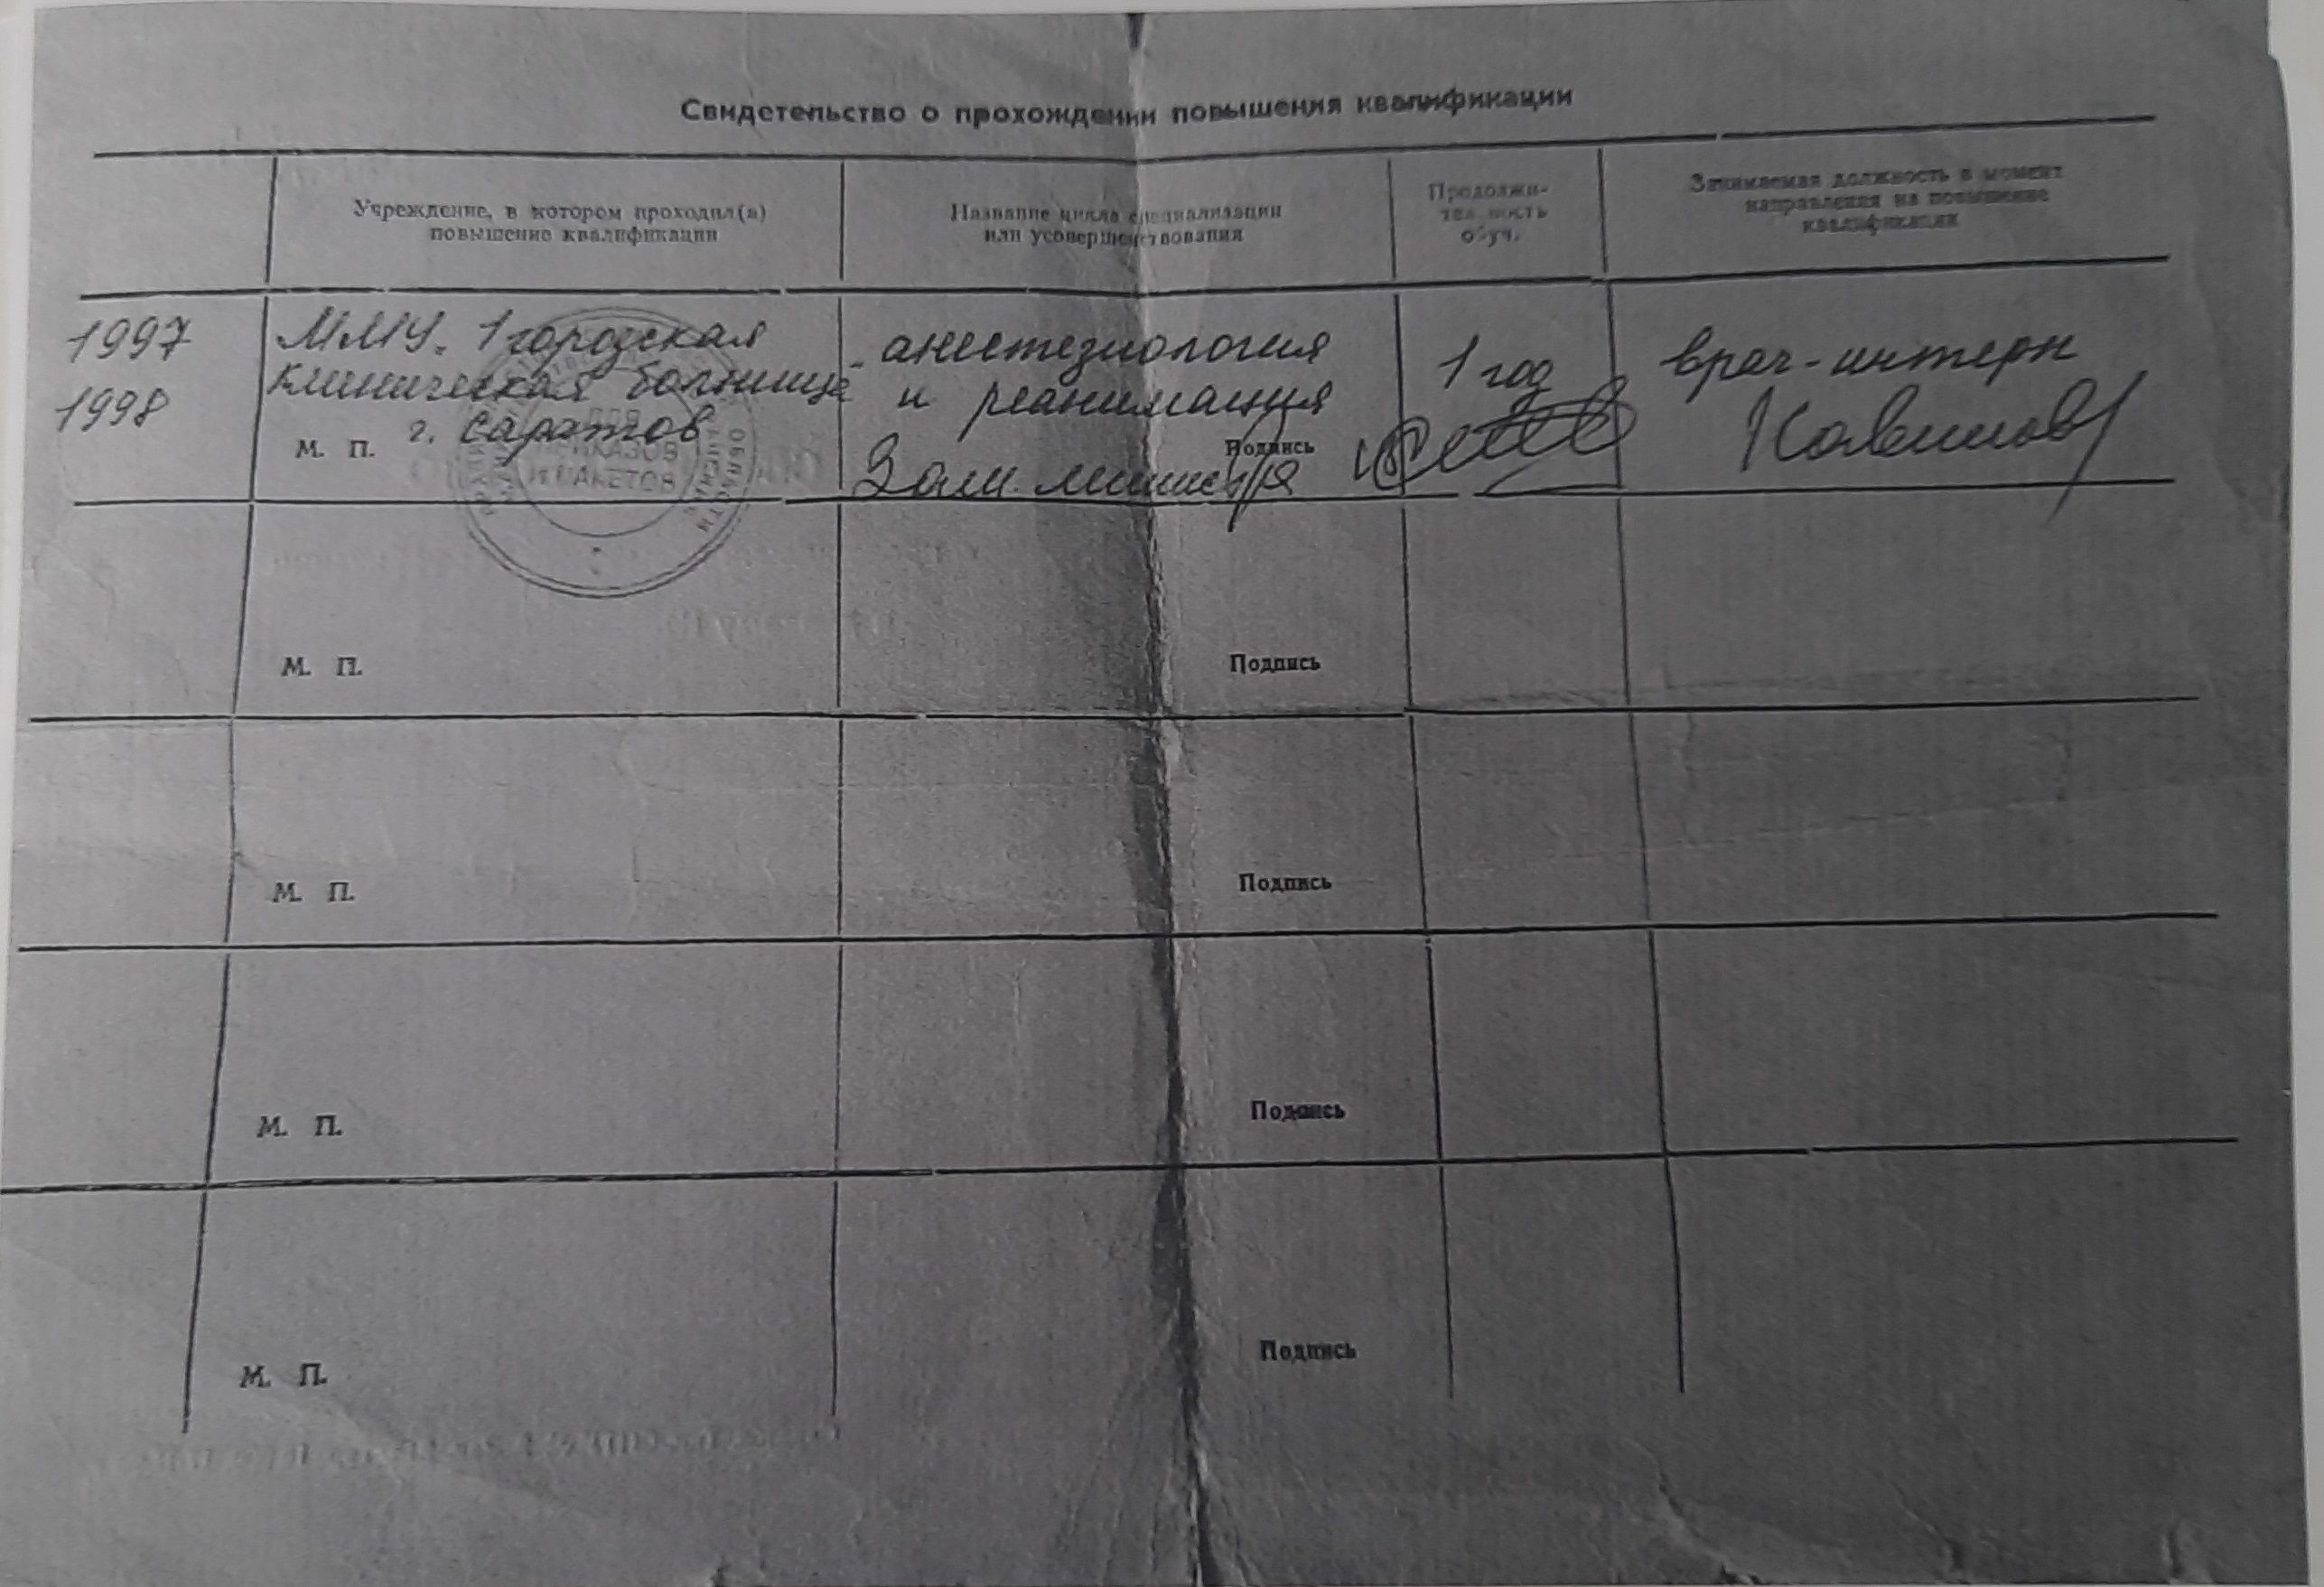 Свидетельство о прохождении повышения квалификации
Учреждение, в котором проходил(а)
повышение квалификации
Название цикла специализации
или усовершенствования
Продолжи-
тельность
обуч.
Занимаемая должность в момент
направления на повышение
квалификации
1997
1998
ММУ. 1 городская
клиническая больница
г. Саратов
М. П.
анестезиология
и реанимация
Подпись
Зам. министра
1 год
врач-интерн
ДЛЯ
ПРИКАЗОВ
И ПАКЕТОВ
ОБЛАСТИ
М. П.
Подпись
М. П.
Подпись
М. П.
Подпись
М. П.
Подпись